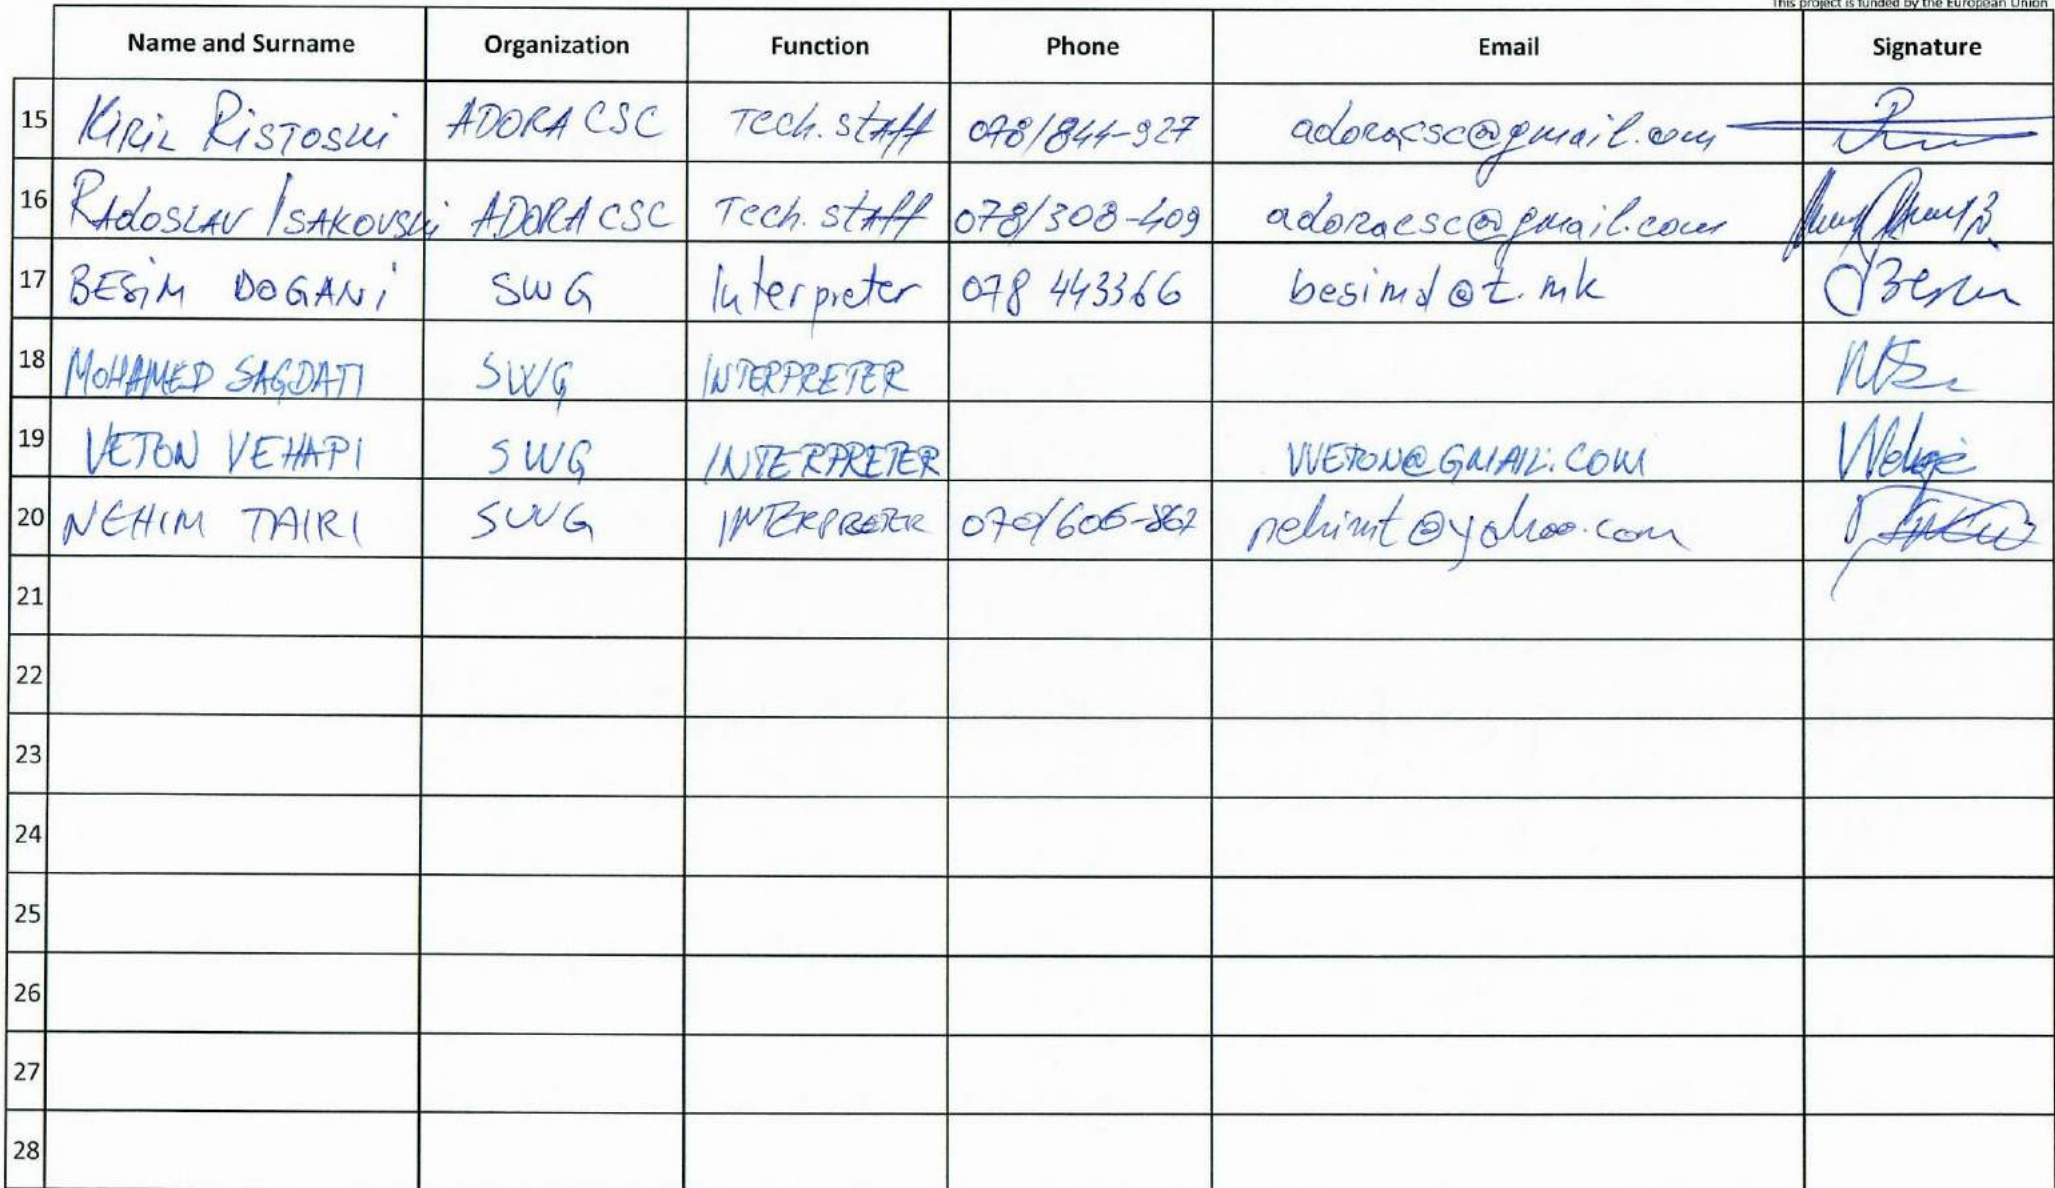 This project is funded by the European Union
Name and Surname Organization Function Phone Email Signature
15 Kiril Ristoski ADORA CSC Tech. staff 078/844-927 adoracsc@gmail.com
16 Radoslav Isakovski ADORA CSC Tech. staff 078/308-409 adoracsc@gmail.com
17 BESIM DOGANI SWG Interpreter 078 443366 besimd@t.mk Besim
18 MOHAMED SAGDATI SWG INTERPRETER
19 VETON VEHAPI SWG INTERPRETER VVETON@GMAIL.COM
20 NEHIM TAIRI SWG INTERPRETER 070/606-867 nehimt@yahoo.com
21
22
23
24
25
26
27
28